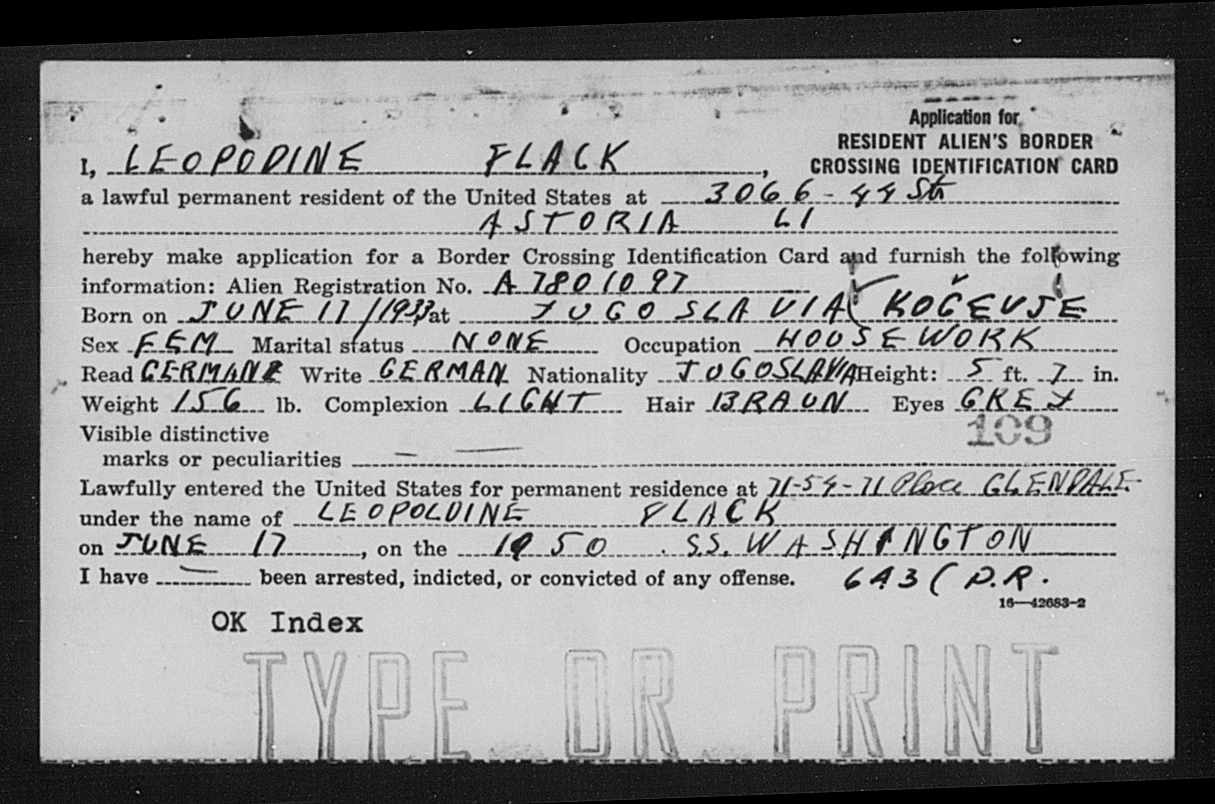 Application for
RESIDENT ALIEN'S BORDER
CROSSING IDENTIFICATION CARD
I, LEOPODINE FLACK,
a lawful permanent resident of the United States at 3066-44 St
ASTORIA LI
hereby make application for a Border Crossing Identification Card and furnish the following
information: Alien Registration No. A7801097
Born on JUNE 17/1933, at JUGOSLAVIA KOČEVJE
Sex FEM Marital status NONE Occupation HOUSEWORK
Read GERMAN Write GERMAN Nationality JUGOSLAVIA Height: 5 ft. 7 in.
Weight 156 lb. Complexion LIGHT Hair BRAUN Eyes GREY
109
Visible distinctive
marks or peculiarities — —
Lawfully entered the United States for permanent residence at 71-54-71 Place GLENDALE
under the name of LEOPOLDINE FLACK
on JUNE 17, on the 1950 . SS. WASHINGTON
I have — been arrested, indicted, or convicted of any offense. 6A3( D.R.
16—42683-2
OK Index
TYPE OR PRINT